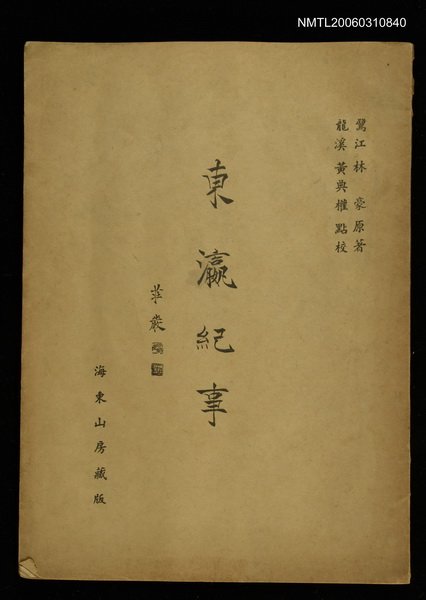 NMTL20060310840
鷺江 林豪原著
龍溪 黃典權點校
東瀛紀事
莊嚴
海東山房藏版